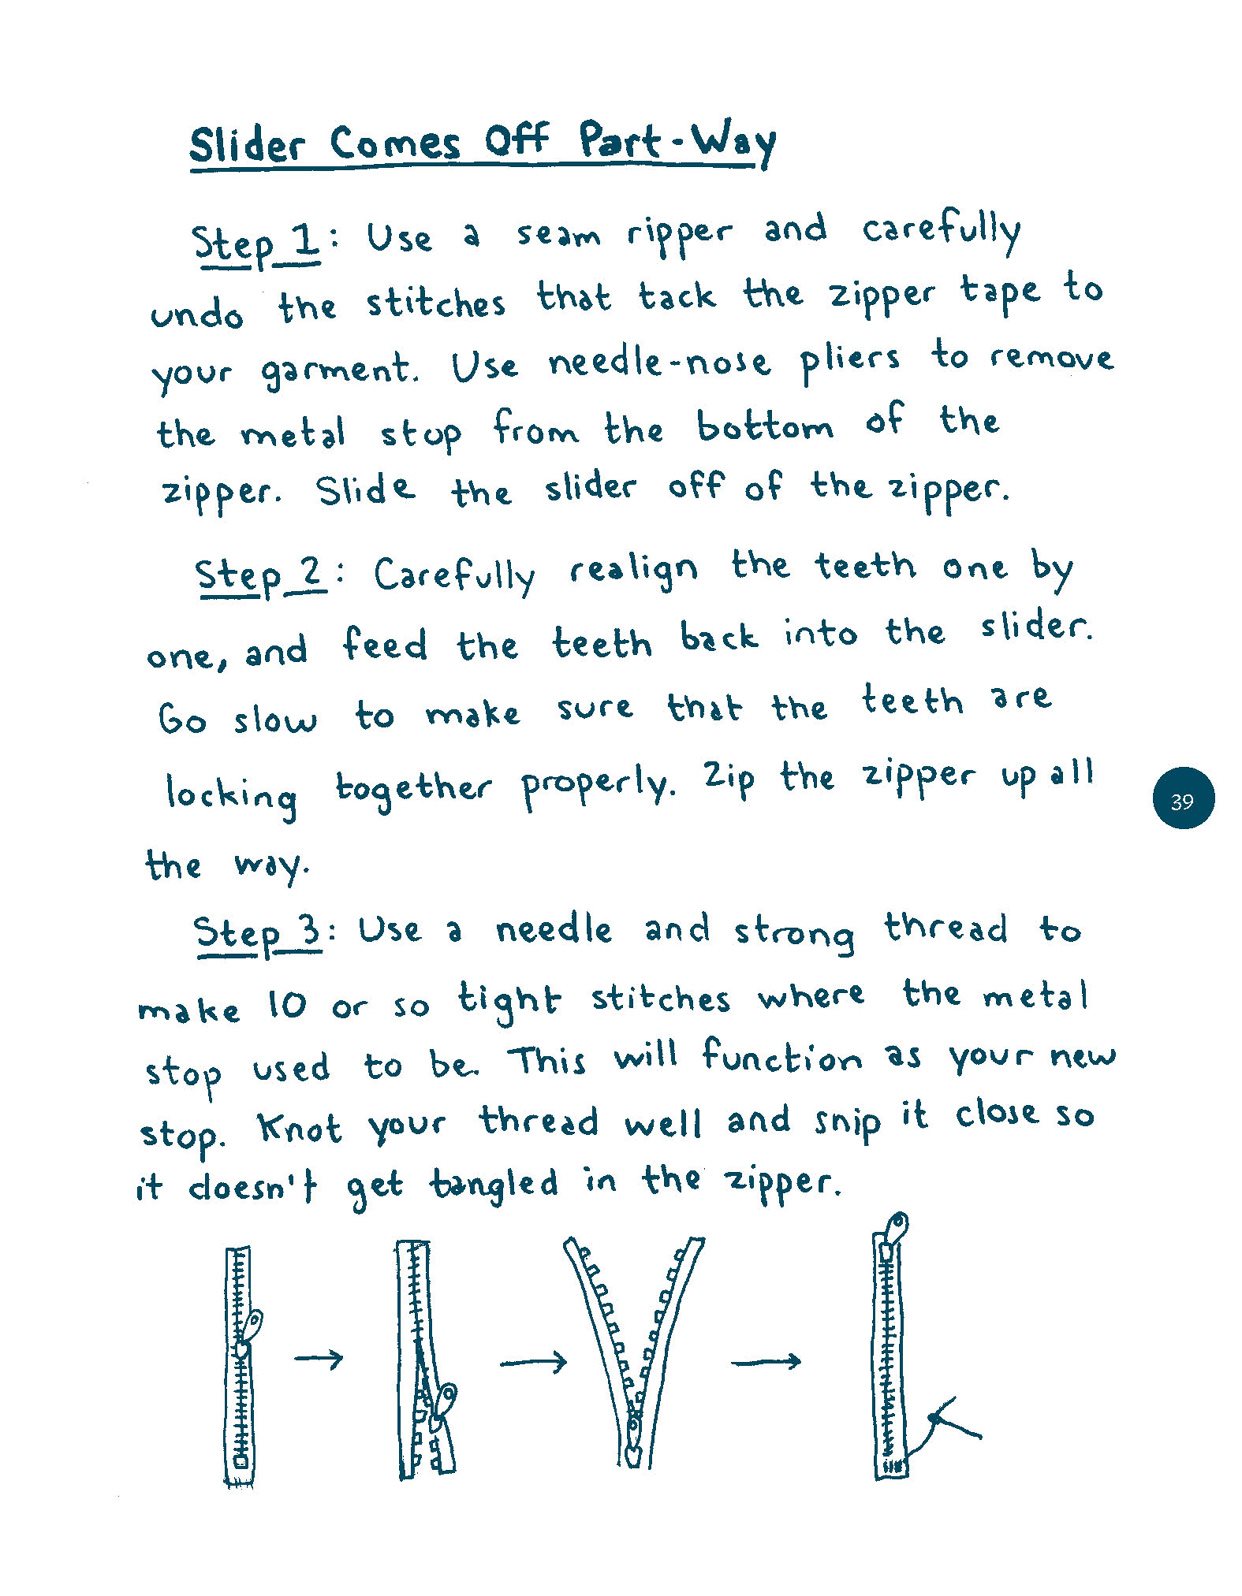 Slider Comes Off Part-Way
Step 1: Use a seam ripper and carefully
undo the stitches that tack the zipper tape to
your garment. Use needle-nose pliers to remove
the metal stop from the bottom of the
zipper. Slide the slider off of the zipper.
Step 2: Carefully realign the teeth one by
one, and feed the teeth back into the slider.
Go slow to make sure that the teeth are
locking together properly. Zip the zipper up all
the way.
Step 3: Use a needle and strong thread to
make 10 or so tight stitches where the metal
stop used to be. This will function as your new
stop. Knot your thread well and snip it close so
it doesn't get tangled in the zipper.
39